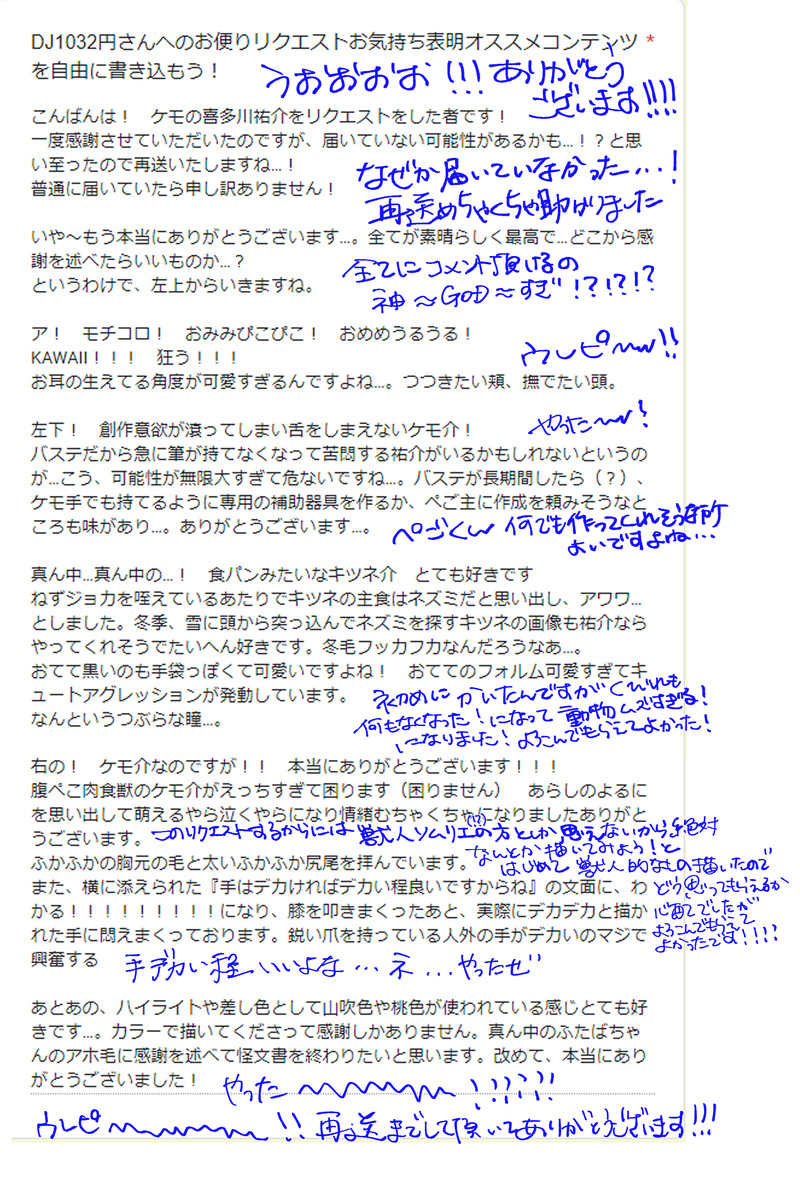 DJ1032円さんへのお便りリクエストお気持ち表明オススメコンテンツ *
を自由に書き込もう！
うおおおお!!!ありがとう
ございます!!!!
こんばんは！　ケモの喜多川祐介をリクエストをした者です！
一度感謝させていただいたのですが、届いていない可能性があるかも…！？と思
い至ったので再送いたしますね…！
普通に届いていたら申し訳ありません！
なぜか届いていなかった…!
再送めちゃくちゃ助かりました
いや〜もう本当にありがとうございます…。全てが素晴らしく最高で…どこから感
謝を述べたらいいものか…？
というわけで、左上からいきますね。
全てにコメント頂けるの
神〜GOD〜すぎ!?!?!?
ア！　モチコロ！　おみみぴこぴこ！　おめめうるうる！
KAWAII！！！　狂う！！！
お耳の生えてる角度が可愛すぎるんですよね…。つつきたい頬、撫でたい頭。
ウレピ〜〜!!
左下！　創作意欲が滾ってしまい舌をしまえないケモ介！
やった〜〜!
バステだから急に筆が持てなくなって苦悶する祐介がいるかもしれないというの
が…こう、可能性が無限大すぎて危ないですね…。バステが長期間したら（？）、
ケモ手でも持てるように専用の補助器具を作るか、ぺご主に作成を頼みそうなと
ころも味があり…。ありがとうございます…。
ぺごくんw 何でも作ってくれそうな所
よいですよね…
真ん中…真ん中の…！　食パンみたいなキツネ介　とても好きです
ねずジョカを咥えているあたりでキツネの主食はネズミだと思い出し、アワワ…
としました。冬季、雪に頭から突っ込んでネズミを探すキツネの画像も祐介なら
やってくれそうでたいへん好きです。冬毛フッカフカなんだろうなあ…。
おてて黒いのも手袋っぽくて可愛いですよね！　おててのフォルム可愛すぎてキ
ュートアグレッションが発動しています。
なんというつぶらな瞳…。
初めにかいたんですがくびれも
何もなくなった!になって動物んですぎる!
になりました!よろこんでもらえてよかった!
右の！　ケモ介なのですが！！　本当にありがとうございます！！！
腹ぺこ肉食獣のケモ介がえっちすぎて困ります（困りません）　あらしのよるに
を思い出して萌えるやら泣くやらになり情緒むちゃくちゃになりましたありがと
うございます。
このリクエストするからには獣人ソムリエ(!?)の方としか思えないから絶対
なんとか描いてみよう!と
はじめて獣人的なもの描いたので
どう思ってもらえるか
心配でしたが
よろこんでもらえて
よかったです!!!!
ふかふかの胸元の毛と太いふかふか尻尾を拝んでいます。
また、横に添えられた『手はデカければデカい程良いですからね』の文面に、わ
かる！！！！！！！！！になり、膝を叩きまくったあと、実際にデカデカと描か
れた手に悶えまくっております。鋭い爪を持っている人外の手がデカいのマジで
興奮する
手デカい程いいよな…ネ…やったぜ
あとあの、ハイライトや差し色として山吹色や桃色が使われている感じとても好
きです…。カラーで描いてくださって感謝しかありません。真ん中のふたばちゃ
んのアホ毛に感謝を述べて怪文書を終わりたいと思います。改めて、本当にあり
がとうございました！
やった〜〜〜〜!!?!?!
ウレピ〜〜〜〜!!再送までして頂いてありがとうございます!!!